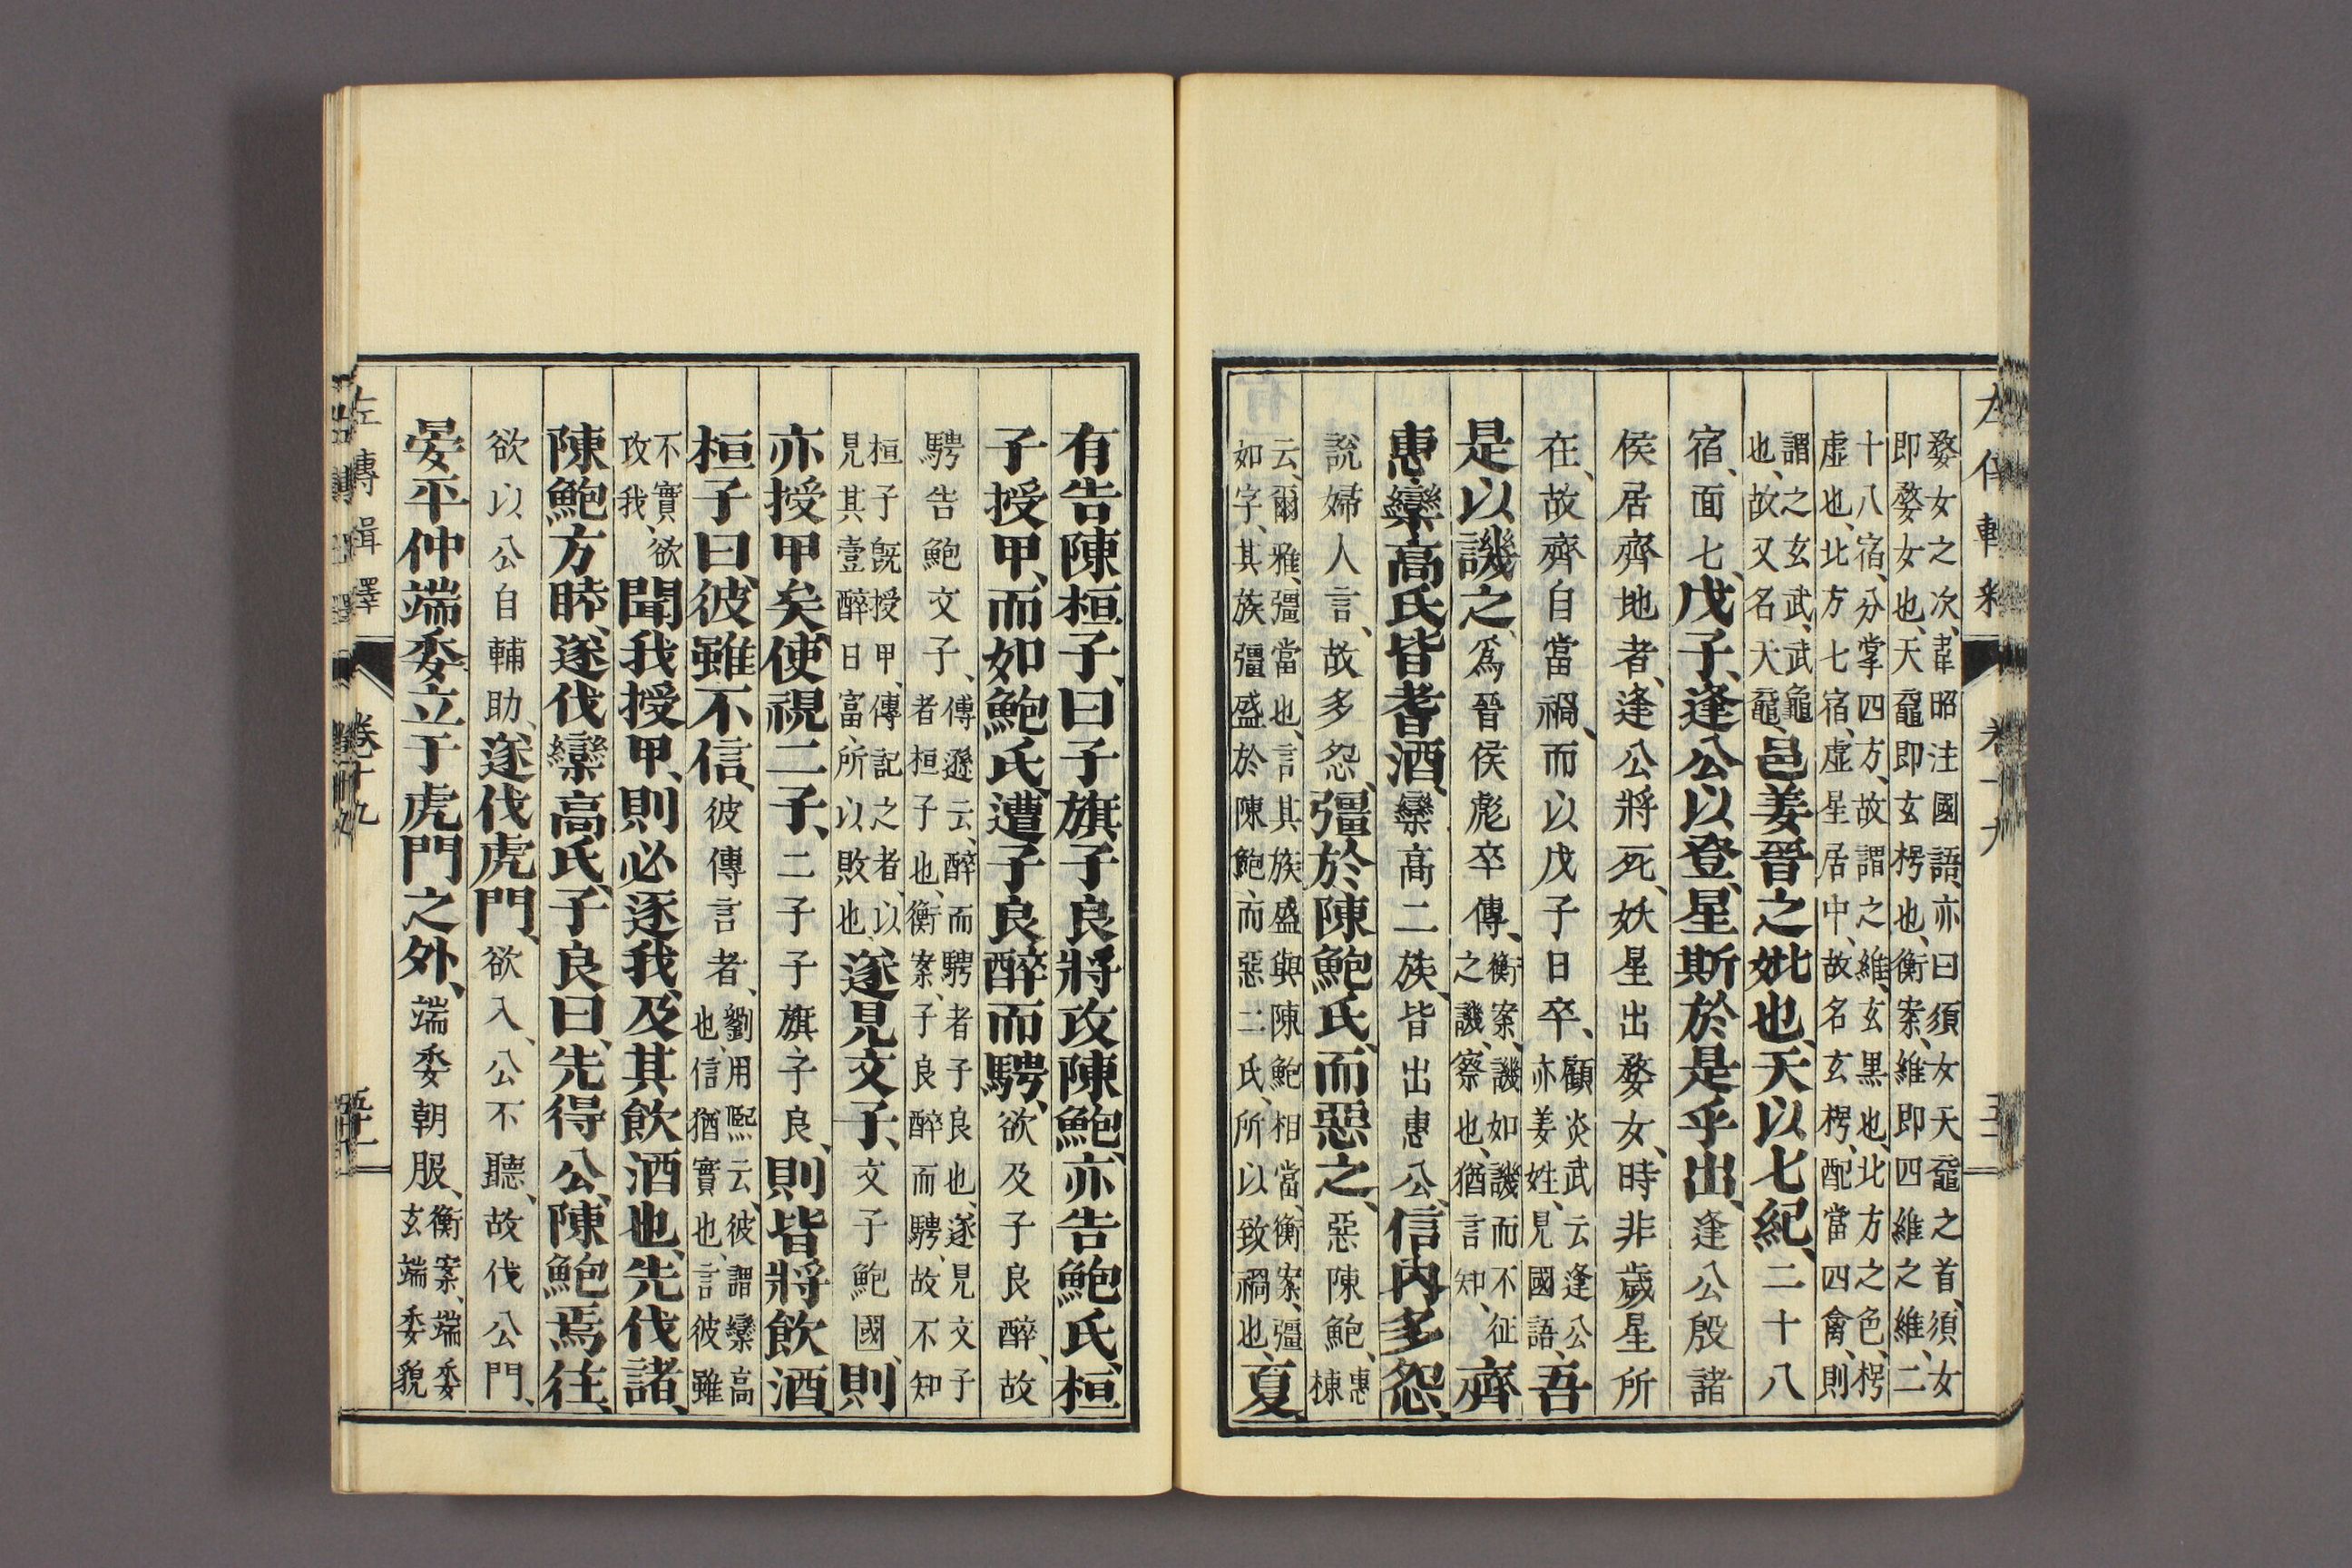 婺女之次、韋昭注國語、亦曰須女天黿之首、須女
即婺女也、天黿即玄枵也、衡案、維即四維之維、二
十八宿、分掌四方、故謂之維、玄黑也、北方之色、枵
虛也、北方七宿、虛星居中、故名玄枵、配當四禽、則
謂之玄武、武龜也、故又名天黿、邑姜晉之妣也、天以七紀、二十八
宿、面七、戊子、逢公以登、星斯於是乎出、逢公殷諸
侯居齊地者、逢公將死、妖星出婺女、時非歲星所
在、故齊自當禍、而以戊子日卒、顧炎武云逢公、亦姜姓、見國語、吾
是以譏之、爲晉侯彪卒傳、衡案、譏如譏而不征之譏、察也、猶言知、齊
惠欒高氏皆耆酒、欒高二族、皆出惠公、信內多怨、
說婦人言、故多怨、彊於陳鮑氏、而惡之、惡陳鮑、惠棟
云、爾雅、彊當也、言其族盛與陳鮑相當、衡案、彊
如字、其族彊盛於陳鮑、而惡二氏、所以致禍也、夏、
有告陳桓子、曰子旗子良將攻陳鮑、亦告鮑氏、桓
子授甲、而如鮑氏、遭子良醉而騁、欲及子良醉、故
騁告鮑文子、傅遜云、醉而騁者子良也、遂見文子者桓子也、衡案、子良醉而騁、故不知
桓子旣授甲、傳記之者、以見其壹醉日富、所以敗也、遂見文子、文子鮑國、則
亦授甲矣、使視二子、二子子旗子良、則皆將飲酒、
桓子曰、彼雖不信、彼傳言者、劉用熙云、彼謂欒高也、信猶實也、言彼雖
不實、欲攻我、聞我授甲、則必逐我、及其飲酒也、先伐諸、
陳鮑方睦、遂伐欒高氏、子良曰、先得公、陳鮑焉往、
欲以公自輔助、遂伐虎門、欲入、公不聽、故伐公門、
晏平仲端委立于虎門之外、端委朝服、衡案、端委玄端委貌
左傳輯釋 卷十九